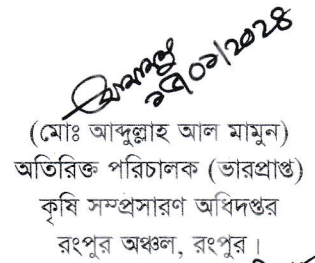 (মোঃ আব্দুল্লাহ আল মামুন)
অতিরিক্ত পরিচালক (ভারপ্রাপ্ত)
কৃষি সম্প্রসারণ অধিদপ্তর
রংপুর অঞ্চল, রংপুর।